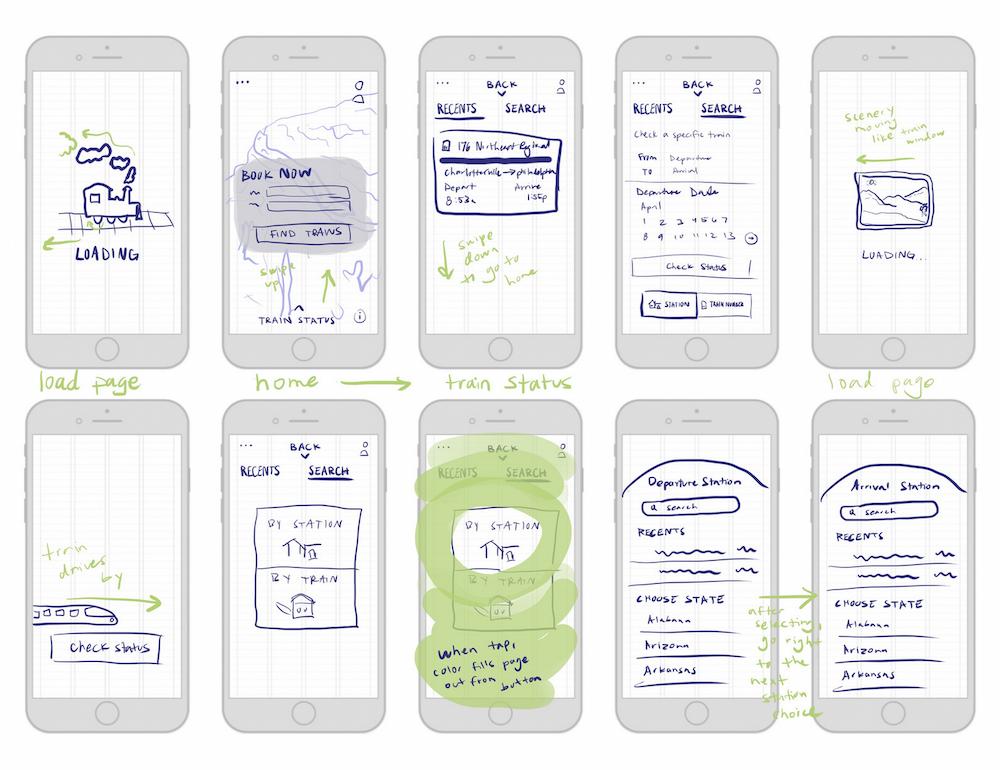 LOADING
load page
...
BOOK NOW
FIND TRAINS
swipe
up
TRAIN STATUS
i
home
...
BACK
RECENTS SEARCH
176 Northeast Regional
Charlottesville → philadelphia
Depart Arrive
8:53a 1:55p
swipe
down
to go to
home
train status
...
BACK
RECENTS SEARCH
Check a specific train
From Departure
TO Arrival
Departure Date
April
1 2 3 4 5 6 7
8 9 10 11 12 13
Check Status
STATION TRAIN NUMBER
scenery
moving
like train
window
LOADING...
load page
train
drives
by
Check status
...
BACK
RECENTS SEARCH
BY STATION
BY TRAIN
...
BACK
RECENTS SEARCH
BY STATION
BY TRAIN
when tap,
color fills page
out from button
Departure Station
search
RECENTS
CHOOSE STATE
Alabama
Arizona
Arkansas
after
selecting,
go right
to the
next
station
choice
Arrival Station
search
RECENTS
CHOOSE STATE
Alabama
Arizona
Arkansas